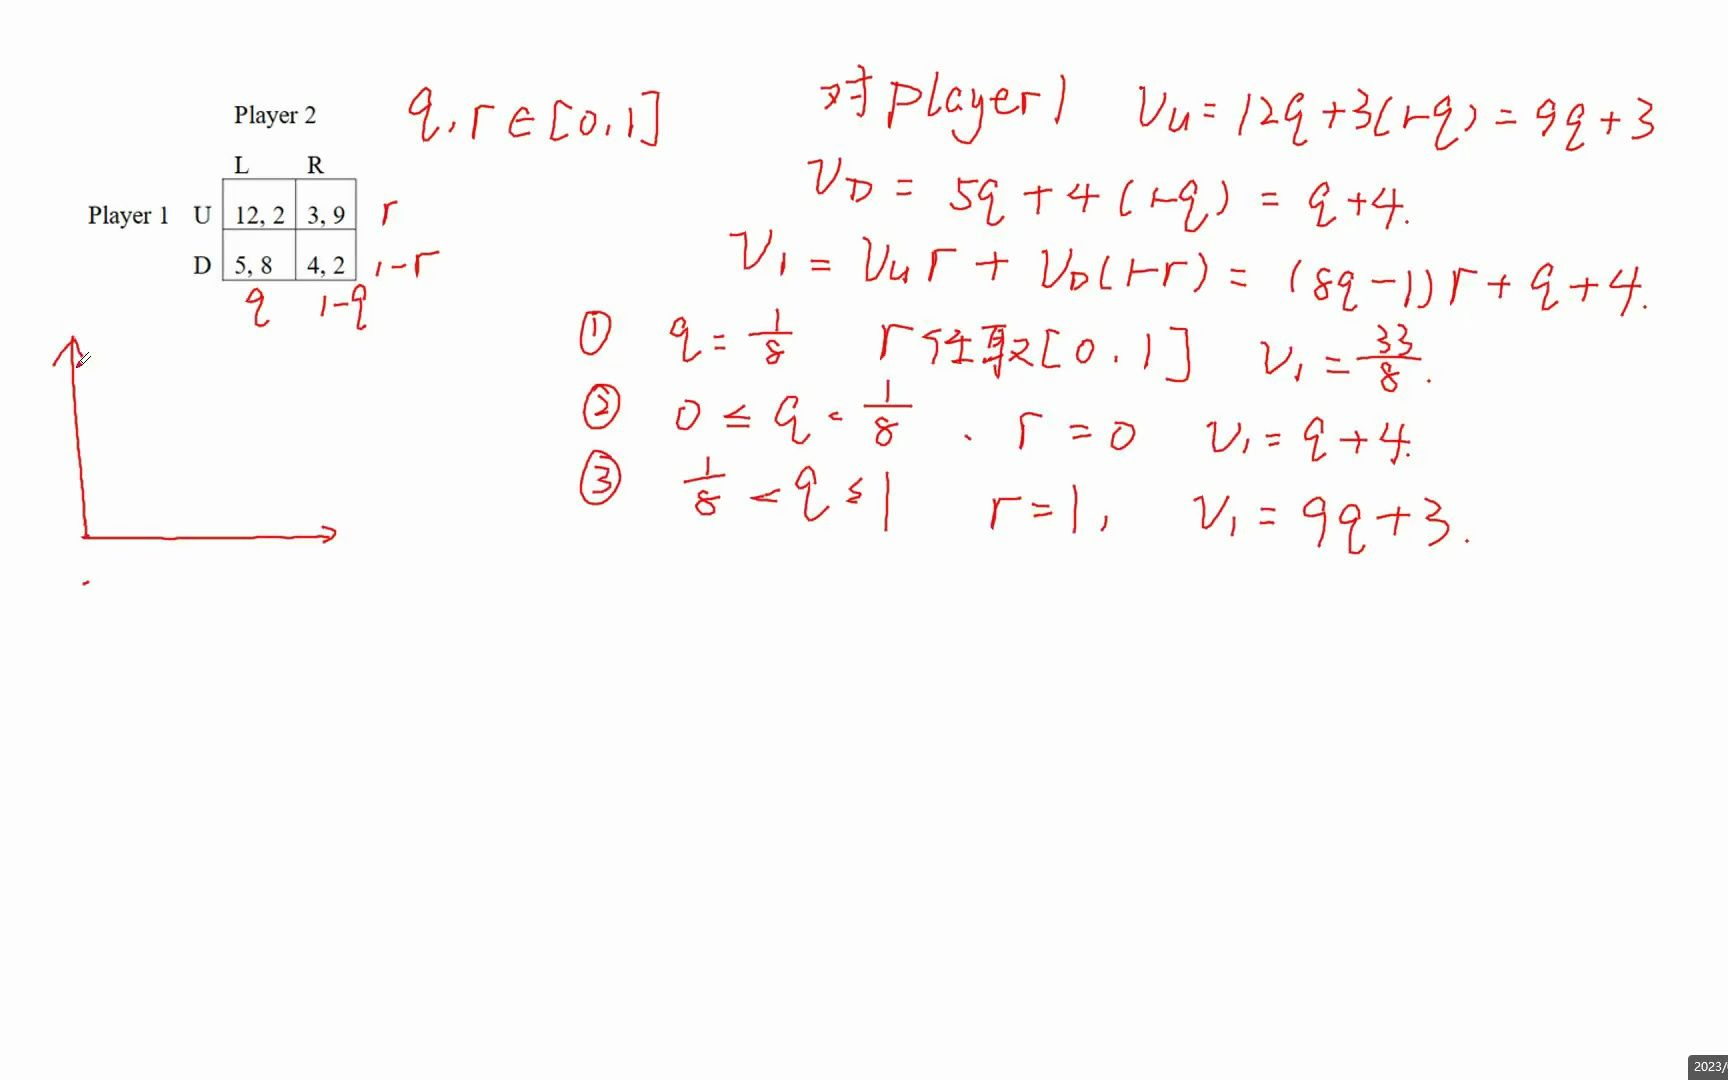 Player 2
q, r ∈ [0, 1]
L R
Player 1 U 12, 2 3, 9 r
D 5, 8 4, 2 1-r
q 1-q
对 player 1 V_U = 12q + 3(1-q) = 9q + 3
V_D = 5q + 4(1-q) = q + 4.
V_1 = V_U r + V_D(1-r) = (8q - 1) r + q + 4.
① q = 1/8 r 任取 [0, 1] V_1 = 33/8.
② 0 ≤ q < 1/8, r = 0 V_1 = q + 4.
③ 1/8 < q ≤ 1 r = 1, V_1 = 9q + 3.
2023/